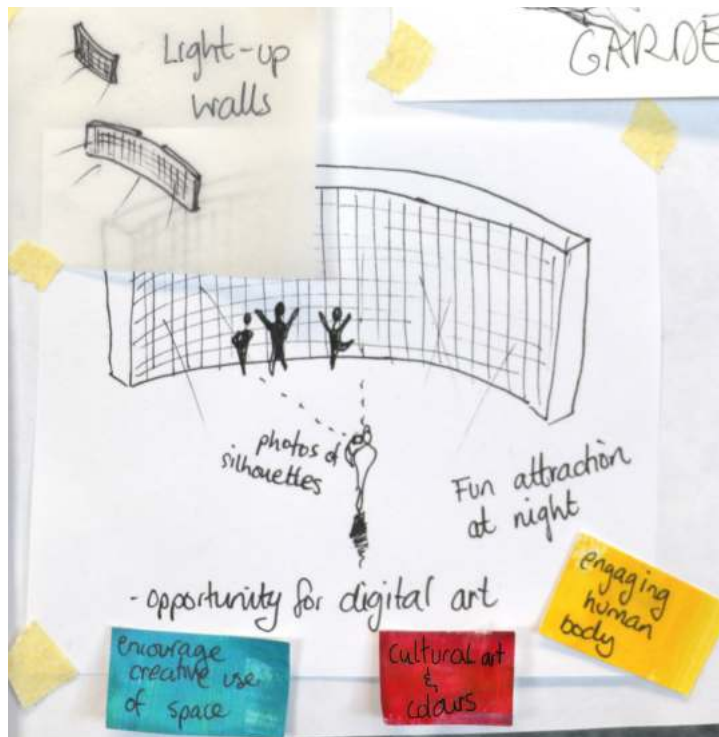 Light-up
walls
GARDE
photos of
silhouettes
Fun attraction
at night
- opportunity for digital art
engaging
human
body
encourage
creative use
of space
cultural art
&
colours